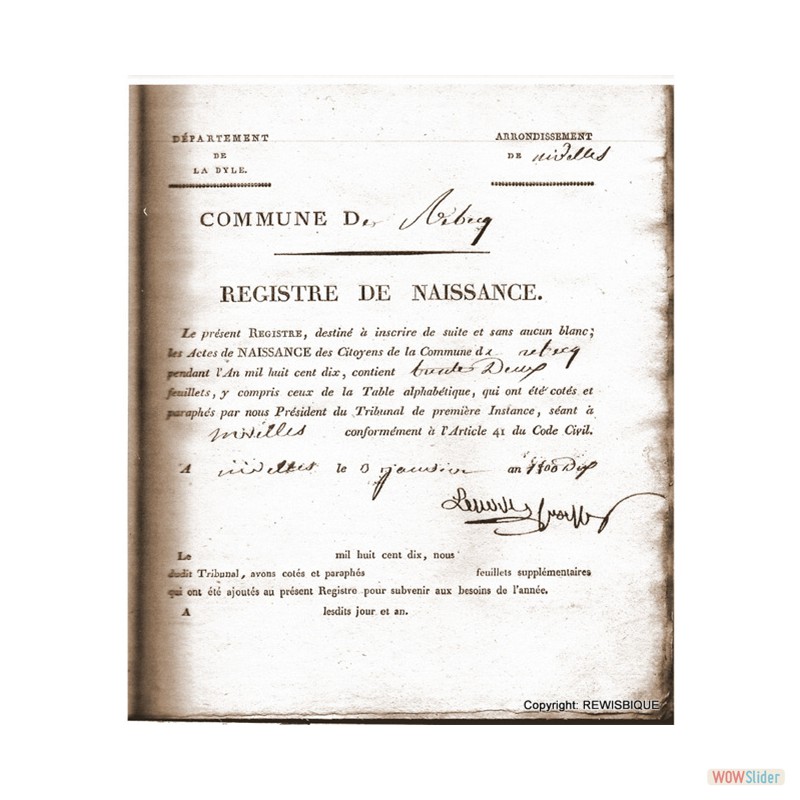 DÉPARTEMENT
DE
LA DYLE.
ARRONDISSEMENT
DE nivelles
COMMUNE De Rebecq
REGISTRE DE NAISSANCE.
Le présent REGISTRE, destiné à inscrire de suite et sans aucun blanc;
les Actes de NAISSANCE des Citoyens de la Commune de rebecq
pendant l'An mil huit cent dix, contient trente Deux
feuillets, y compris ceux de la Table alphabétique, qui ont été cotés et
paraphés par nous Président du Tribunal de première Instance, séant à
nivelles conformément à l'Article 41 du Code Civil.
A nivelles le janvier an Dix
Le mil huit cent dix, nous
dudit Tribunal, avons cotés et paraphés feuillets supplémentaires
qui ont été ajoutés au présent Registre pour subvenir aux besoins de l'année.
A lesdits jour et an.
Copyright: REWISBIQUE
WOWSlider